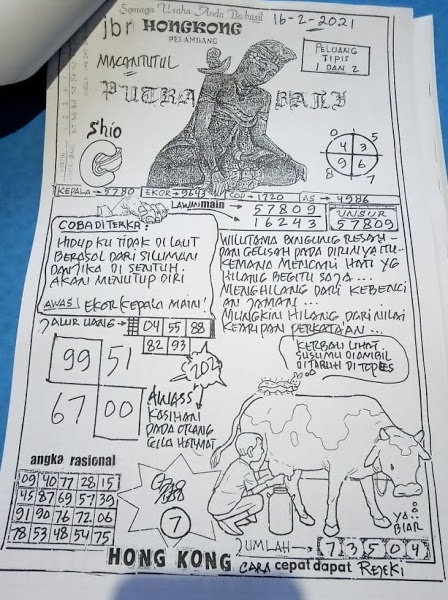 Semoga Usaha Anda Berhasil
16-2-2021
jbr HONGKONG
PELAMBANG
MACANTUTUL
PELUANG
TIPIS
1 DAN 2
PUTRA BALI
Shio
0 5
4 3
9 6
8 7
KEPALA → 5780 EKOR → 9643 COP → 1720 AS → 4986
LAWAN main 57809
16243
UNSUR
57809
COBA DITERKA:
HIDUPKU TIDAK DI LAUT
BERASAL DARI SILUMAN
DAN JIKA DI SENTUH.
AKAN MENUTUP DIRI
AWAS! EKOR/KEPALA MAIN!
WILUTAMA BINGUNG RESAH
DAN GELISAH PADA DIRINYA ITU..
KEMANA MENCARI HATI YG
HILANG BEGITU SAJA...
MENGHILANG DARI KEBENCI
AN JAMAN...
MUNGKIN HILANG DARI NILAI
KEARIPAN PERKATAAN...
JALUR UANG → 04 55 88
82 93
99 51
67 00
202
KERBAU LIHAT.
SUSUMU DIAMBIL
DITARUH DI TOPLES
AWASS
KASIHAN
PADA ORANG
GILA HORMAT
angka rasional
09 40 77 28 15
45 87 69 57 39
91 90 76 72 06
78 53 48 54 75
7
YA..
BIAR
JUMLAH → 7 3 5 0 4
HONG KONG CARA cepat dapat REJEKI